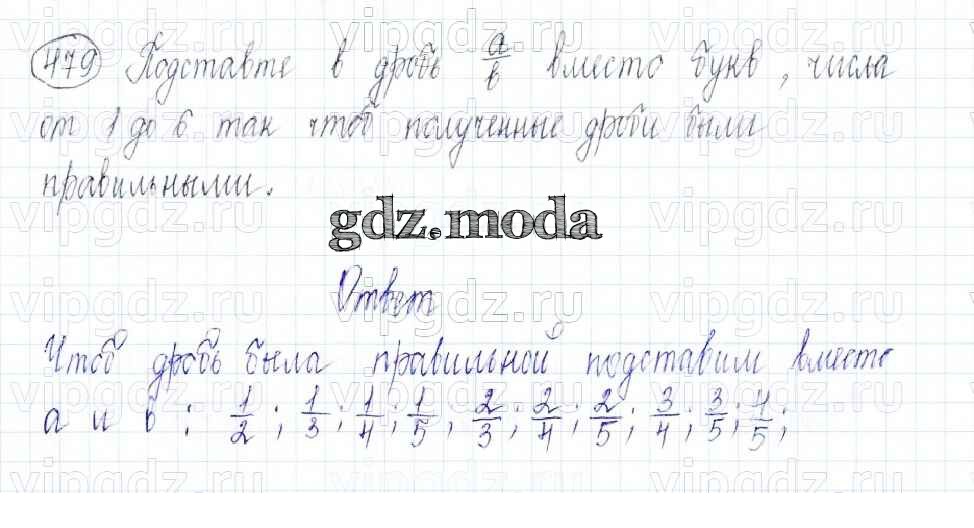 479 Подставте в дробь a/в вместо букв, числа
от 1 до 6 так чтоб полученные дроби были
правильными.
gdz.moda
Ответ
Чтоб дробь была правильной подставим вместо
а и в : 1/2 ; 1/3 ; 1/4 ; 1/5 ; 2/3 ; 2/4 ; 2/5 ; 3/4 ; 3/5 ; 4/5 ;